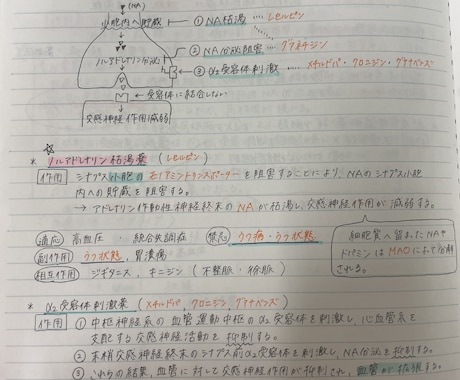 (NA)
小胞内へ貯蔵 ① NA枯渇 …… レセルピン
② NA分泌阻害 …… グアネチジン
ノルアドレナリン分泌
③ α2受容体刺激 …… メチルドパ・クロニジン・グアナベンズ
← 受容体に結合しない
交感神経作用減弱
* ノルアドレナリン枯渇薬 (レセルピン)
作用 シナプス小胞のモノアミントランスポーターを阻害することにより、NAのシナプス小胞
内への貯蔵を阻害する。
→ アドレナリン作動性神経終末のNAが枯渇し、交感神経作用が減弱する。
適応 高血圧・統合失調症 禁忌 うつ病・うつ状態
副作用 うつ状態、胃潰瘍
相互作用 ジギタリス、キニジン (不整脈・徐脈)
細胞質へ留まったNAや
ドパミンはMAOによって分
解される。
* α2受容体刺激薬 (メチルドパ、クロニジン、グアナベンズ)
作用 ① 中枢神経系の血管運動中枢のα2受容体を刺激し、心血管系を
支配する交感神経活動を抑制する。
② 末梢交感神経終末のシナプス前α2受容体を刺激し、NA分泌を抑制する。
③ これらの結果、血管に対して交感神経作用が抑制され、血管が拡張する。